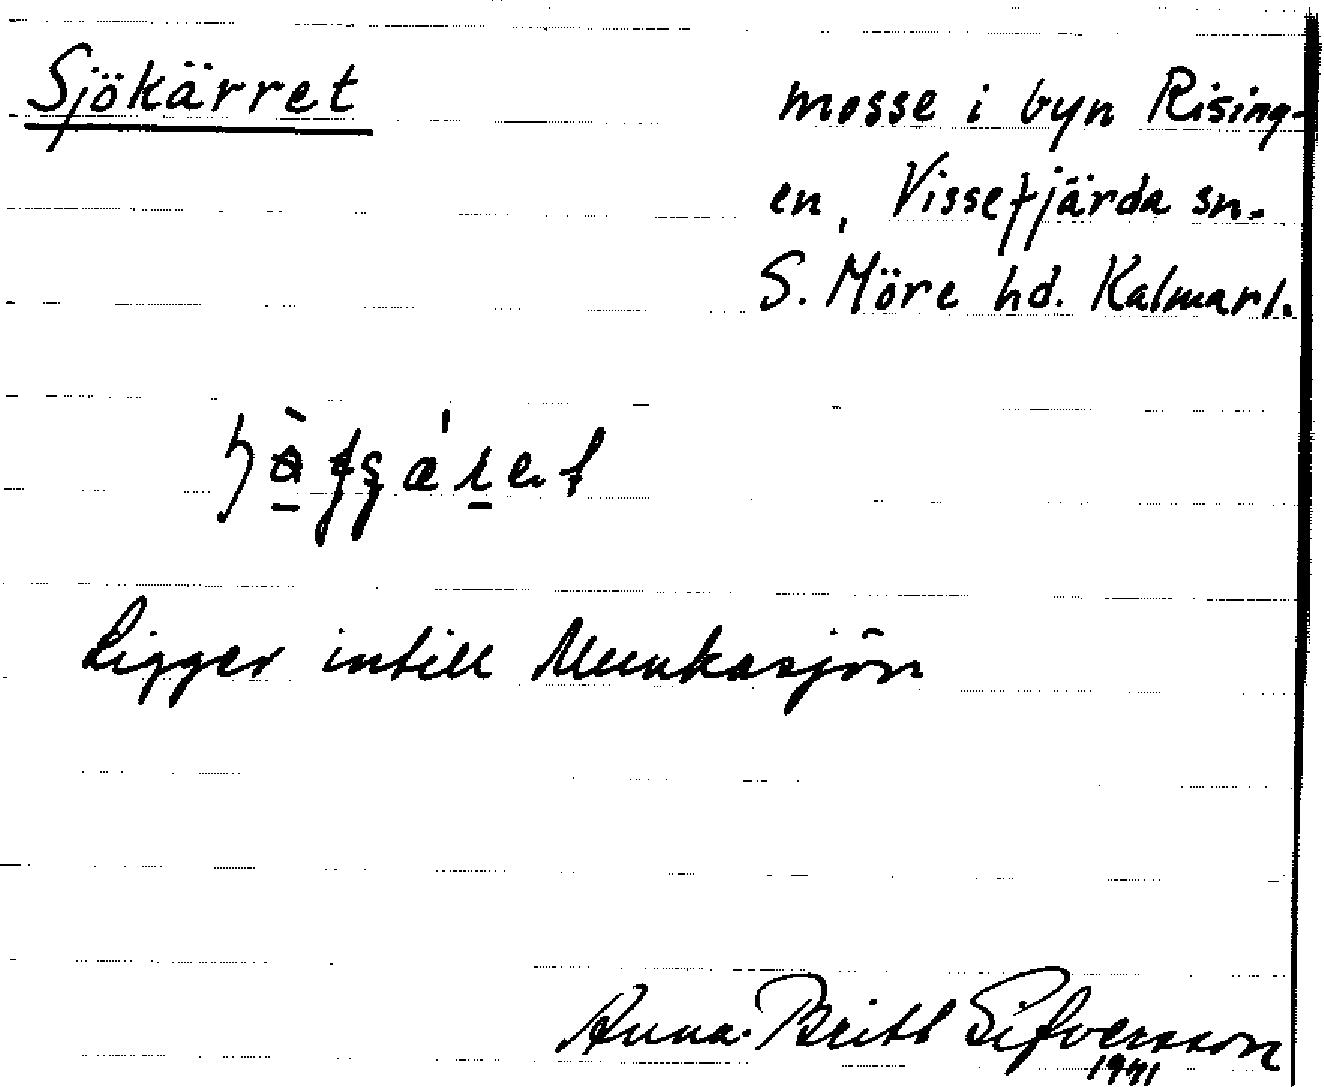 Sjökärret
mosse i byn Rising-
en, Vissefjärda sn.
S. Möre hd. Kalmarl.
Ligger intill Munkasjön
Anna-Britt Sifversson
1971